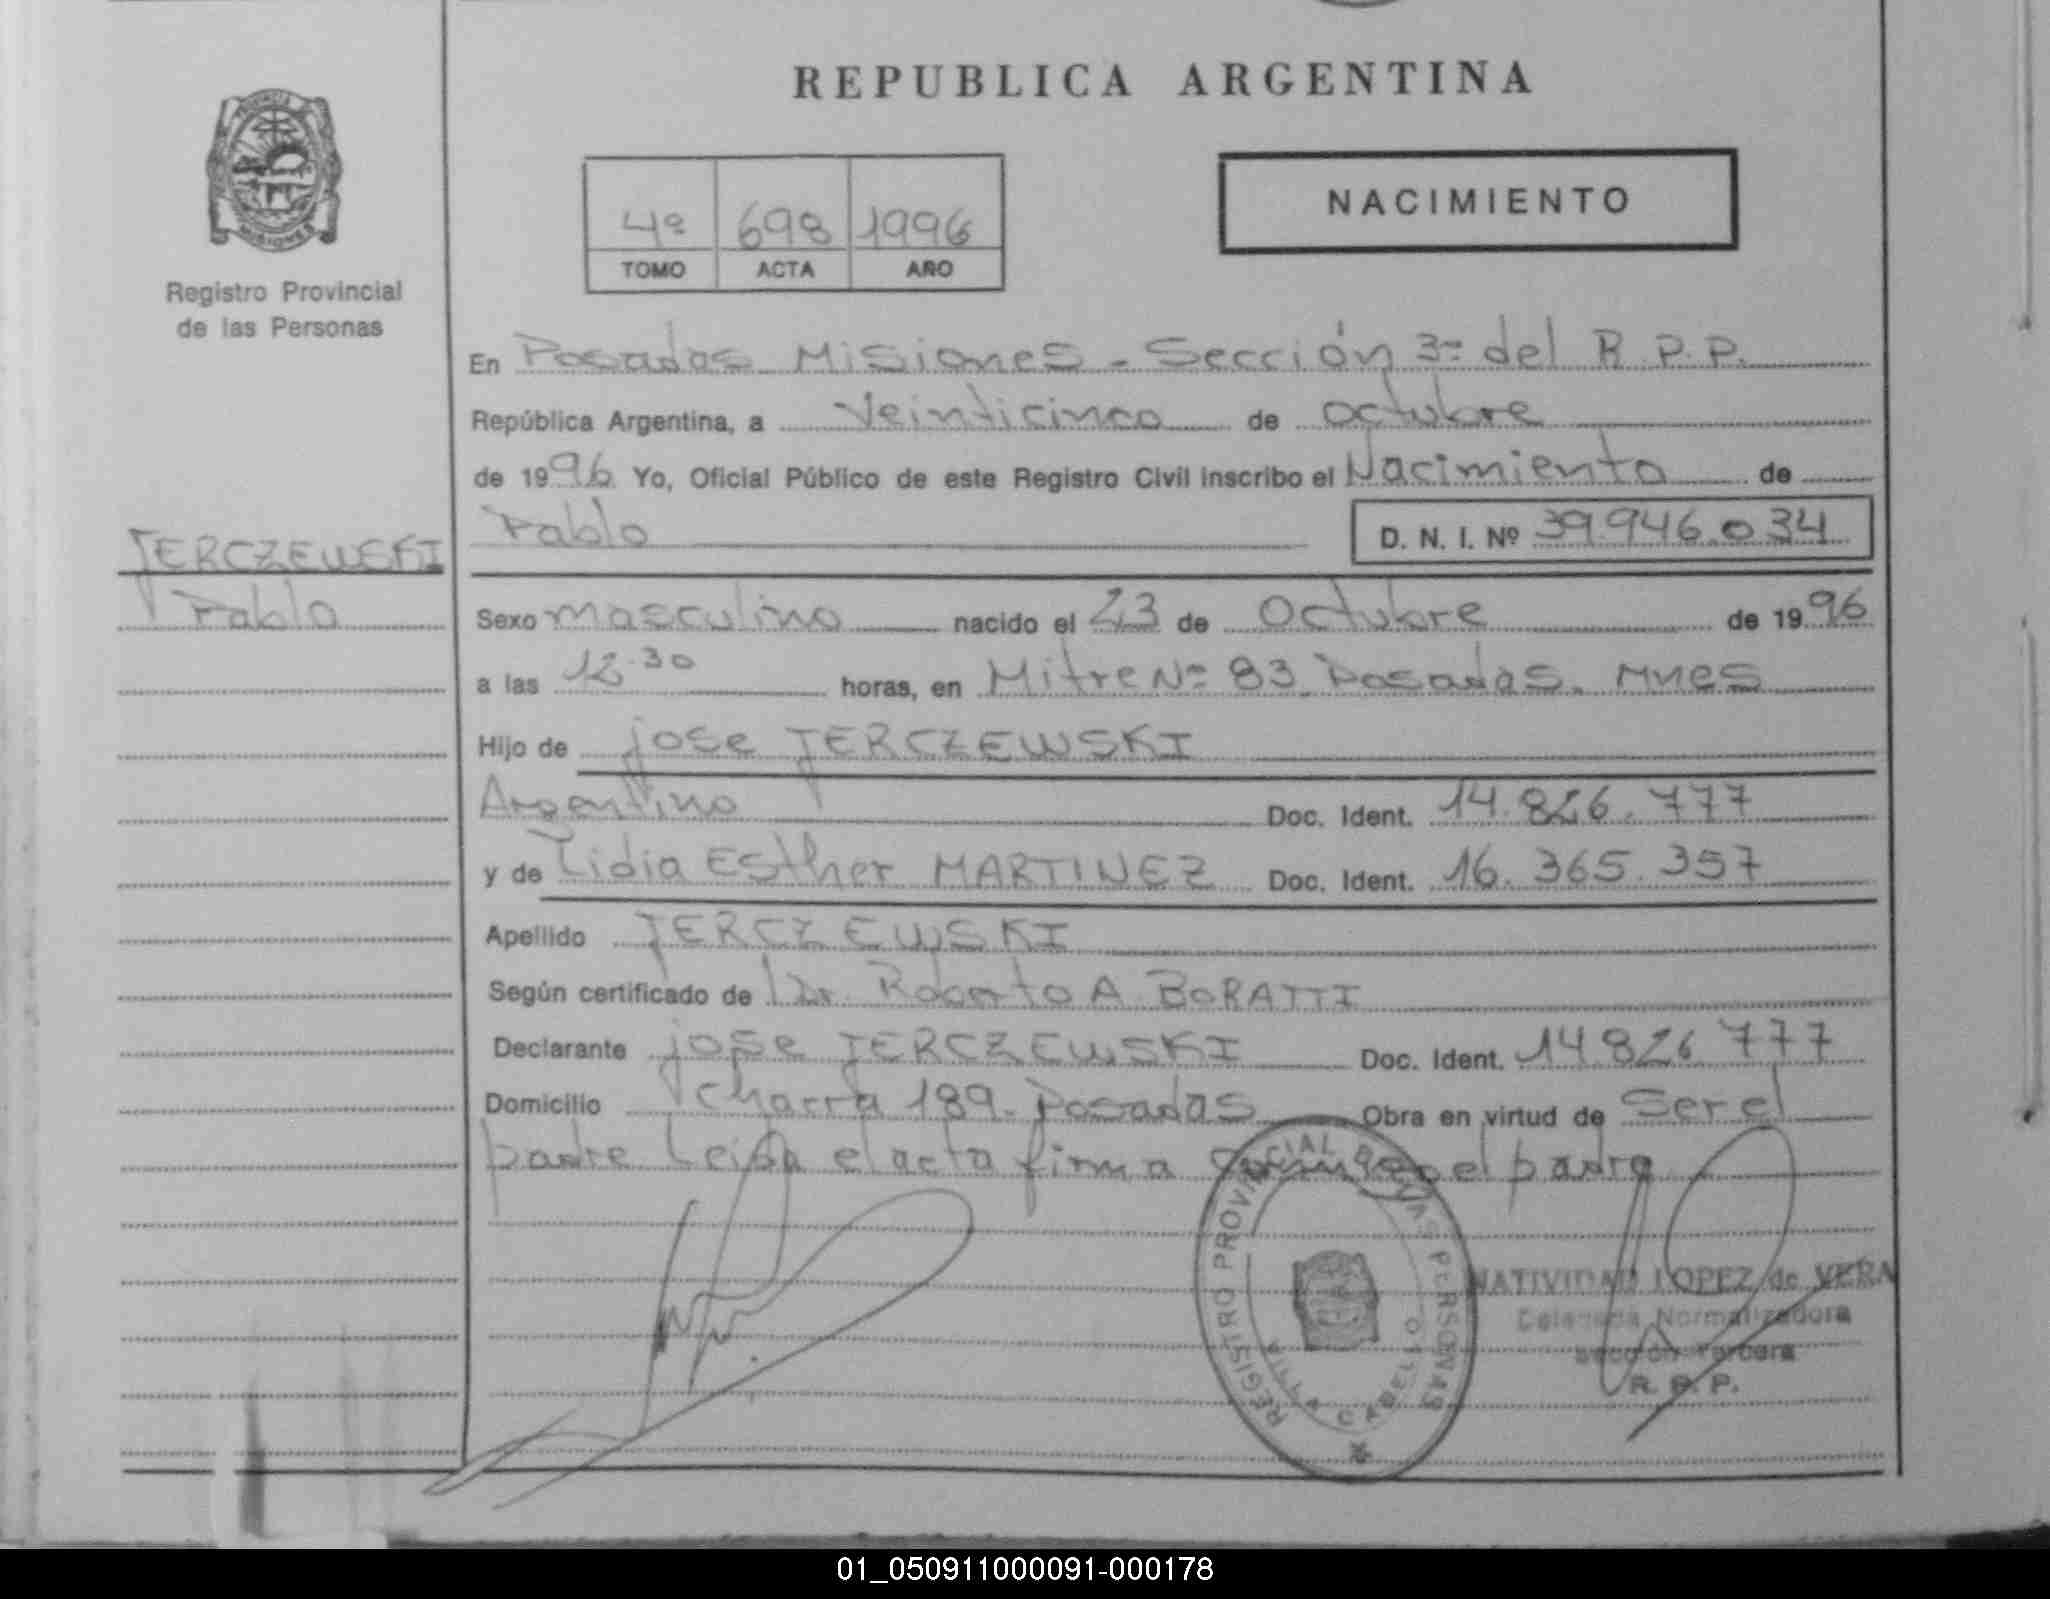 REPUBLICA ARGENTINA
PROVINCIA
MISIONES
Registro Provincial
de las Personas
4º 698 1996
TOMO ACTA AÑO
NACIMIENTO
En Posadas Misiones - Sección 3ª del R.P.P.
República Argentina, a Veinticinco de octubre
de 1996 Yo, Oficial Público de este Registro Civil inscribo el Nacimiento de
Pablo D. N. I. Nº 39.946.034
JERCZEWSKI
Pablo
Sexo masculino nacido el 23 de Octubre de 1996
a las 12.30 horas, en Mitre Nº 83 Posadas. Mnes
Hijo de jose JERCZEWSKI
Argentino Doc. Ident. 14.826.777
y de Lidia Esther MARTINEZ Doc. Ident. 16.365.357
Apellido JERCZEWSKI
Según certificado de Dr. Roberto A BORATTI
Declarante jose JERCZEWSKI Doc. Ident. 14826777
Domicilio Charra 189. Posadas Obra en virtud de Ser el
padre Leida el acta firma conmigo el padre
REGISTRO PROVINCIAL DE LAS PERSONAS
VILLA CABELLO
NATIVIDAD LOPEZ de VERA
Delegada Normalizadora
Sección Tercera
R. P. P.
01_050911000091-000178